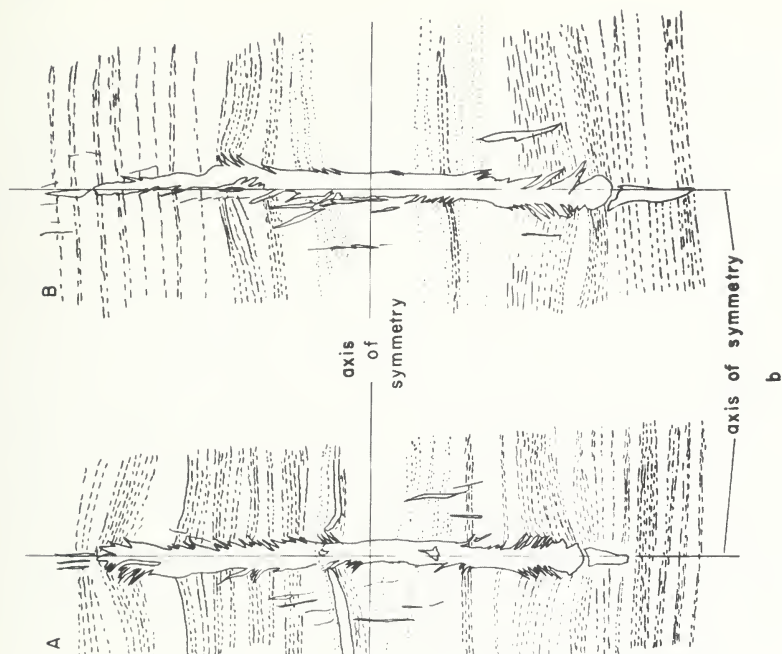 B
axis
of
symmetry
A
axis of symmetry
b